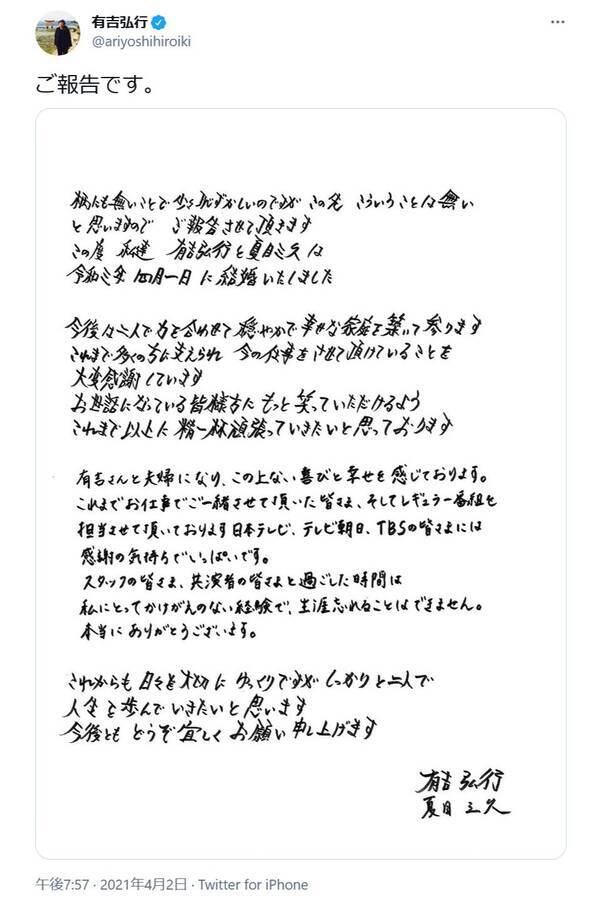 有吉弘行
@ariyoshihiroiki
ご報告です。
柄にも無いことで少々恥ずかしいのですが この先 こういうことは無い
と思いますので ご報告させて頂きます
この度 私達 有吉弘行と夏目三久は
令和三年 四月一日 に結婚いたしました
今後は二人で力を合わせて穏やかで幸せな家庭を築いて参ります
これまで多くの方に支えられ 今の仕事をさせて頂けていることを
大変感謝しています
お世話になっている皆様方に もっと笑っていただけるよう
これまで以上に 精一杯頑張っていきたいと思っております
有吉さんと夫婦になり、この上ない喜びと幸せを感じております。
これまでお仕事でご一緒させて頂いた皆さま、そしてレギュラー番組を
担当させて頂いております日本テレビ、テレビ朝日、TBSの皆さまには
感謝の気持ちでいっぱいです。
スタッフの皆さま、共演者の皆さまと過ごした時間は
私にとってかけがえのない経験で、生涯忘れることはできません。
本当にありがとうございます。
これからも 日々を大切に ゆっくりですが しっかりと二人で
人生を歩んでいきたいと思います
今後とも どうぞ宜しく お願い申し上げます
有吉弘行
夏目三久
午後7:57 · 2021年4月2日 · Twitter for iPhone